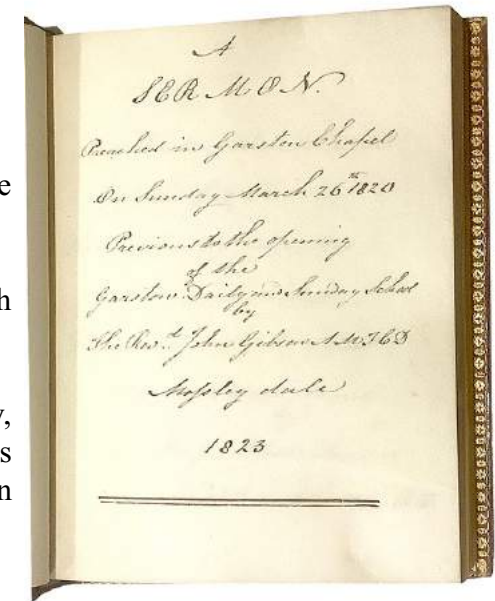 e
h
y,
s
n
A
SERMON.
Preached in Garsten Chapel
On Sunday March 26th 1820
Previous to the opening
of the
Garstow Daily and Sunday School
by
The Revd. John Gibson A M T C D
Mossley dale
1823